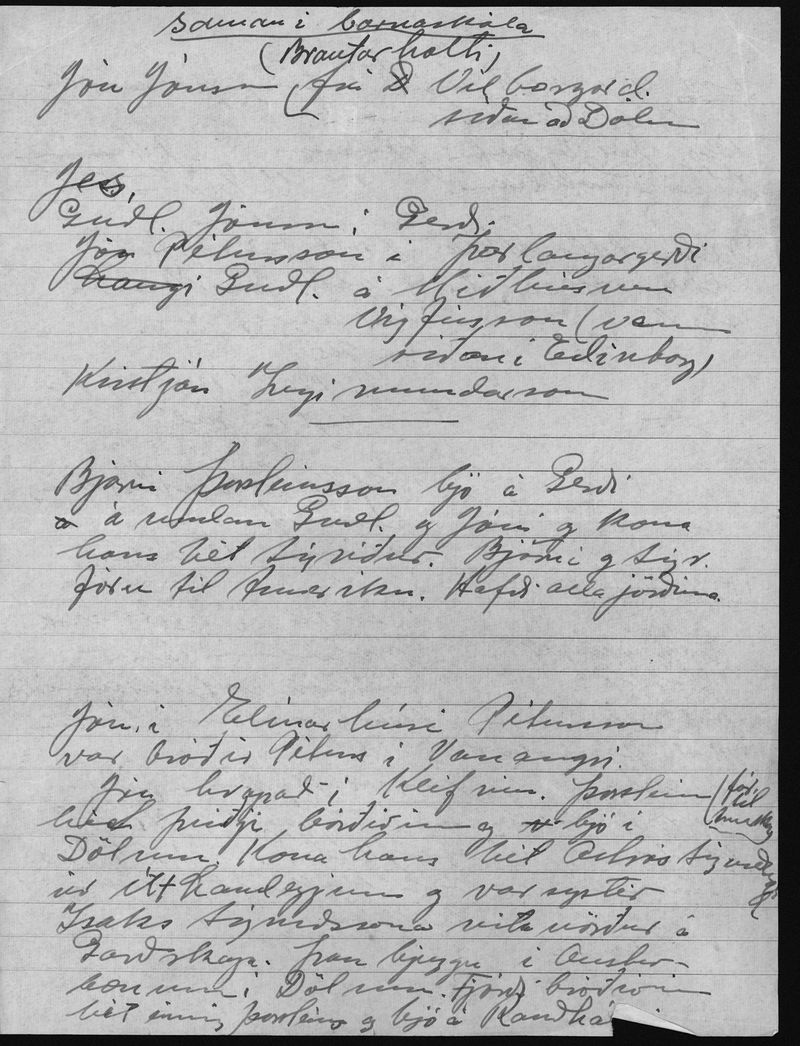 saman í barnaskóla
(Brautarholti)
Jón Jónsson (frá Vilborgarst.
síðar að Dölum
Guðl. Jónsson í Gerði.
Jón Pétursson í Þorlaugargerði
Guðl. á Miðhúsum
Vigfússon (var
síðan í Edinborg)
Kristján Ingimundarson
Björn Þorsteinsson bjó á Gerði
á undan Guðl. og Jóni og kona
hans hét Sigríður. Björn og Sigr.
fóru til Ameríku. Hafði alla jörðina.
Jón í Elínarhúsi Pétursson
var bróðir Péturs í Vanangri.
Jón hrapaði í Klifinu. Þorsteinn (fór til Ameríku)
hét þriðji bróðirinn og bjó í
Dölum. Kona hans hét
úr Út-Landeyjum og var systir
Ísaks Sigurðssonar vitavörður á
Garðskaga. Þau bjuggu í Austur-
bænum í Dölum. Fjórði bróðirinn
hét einnig Þorsteinn og bjó á